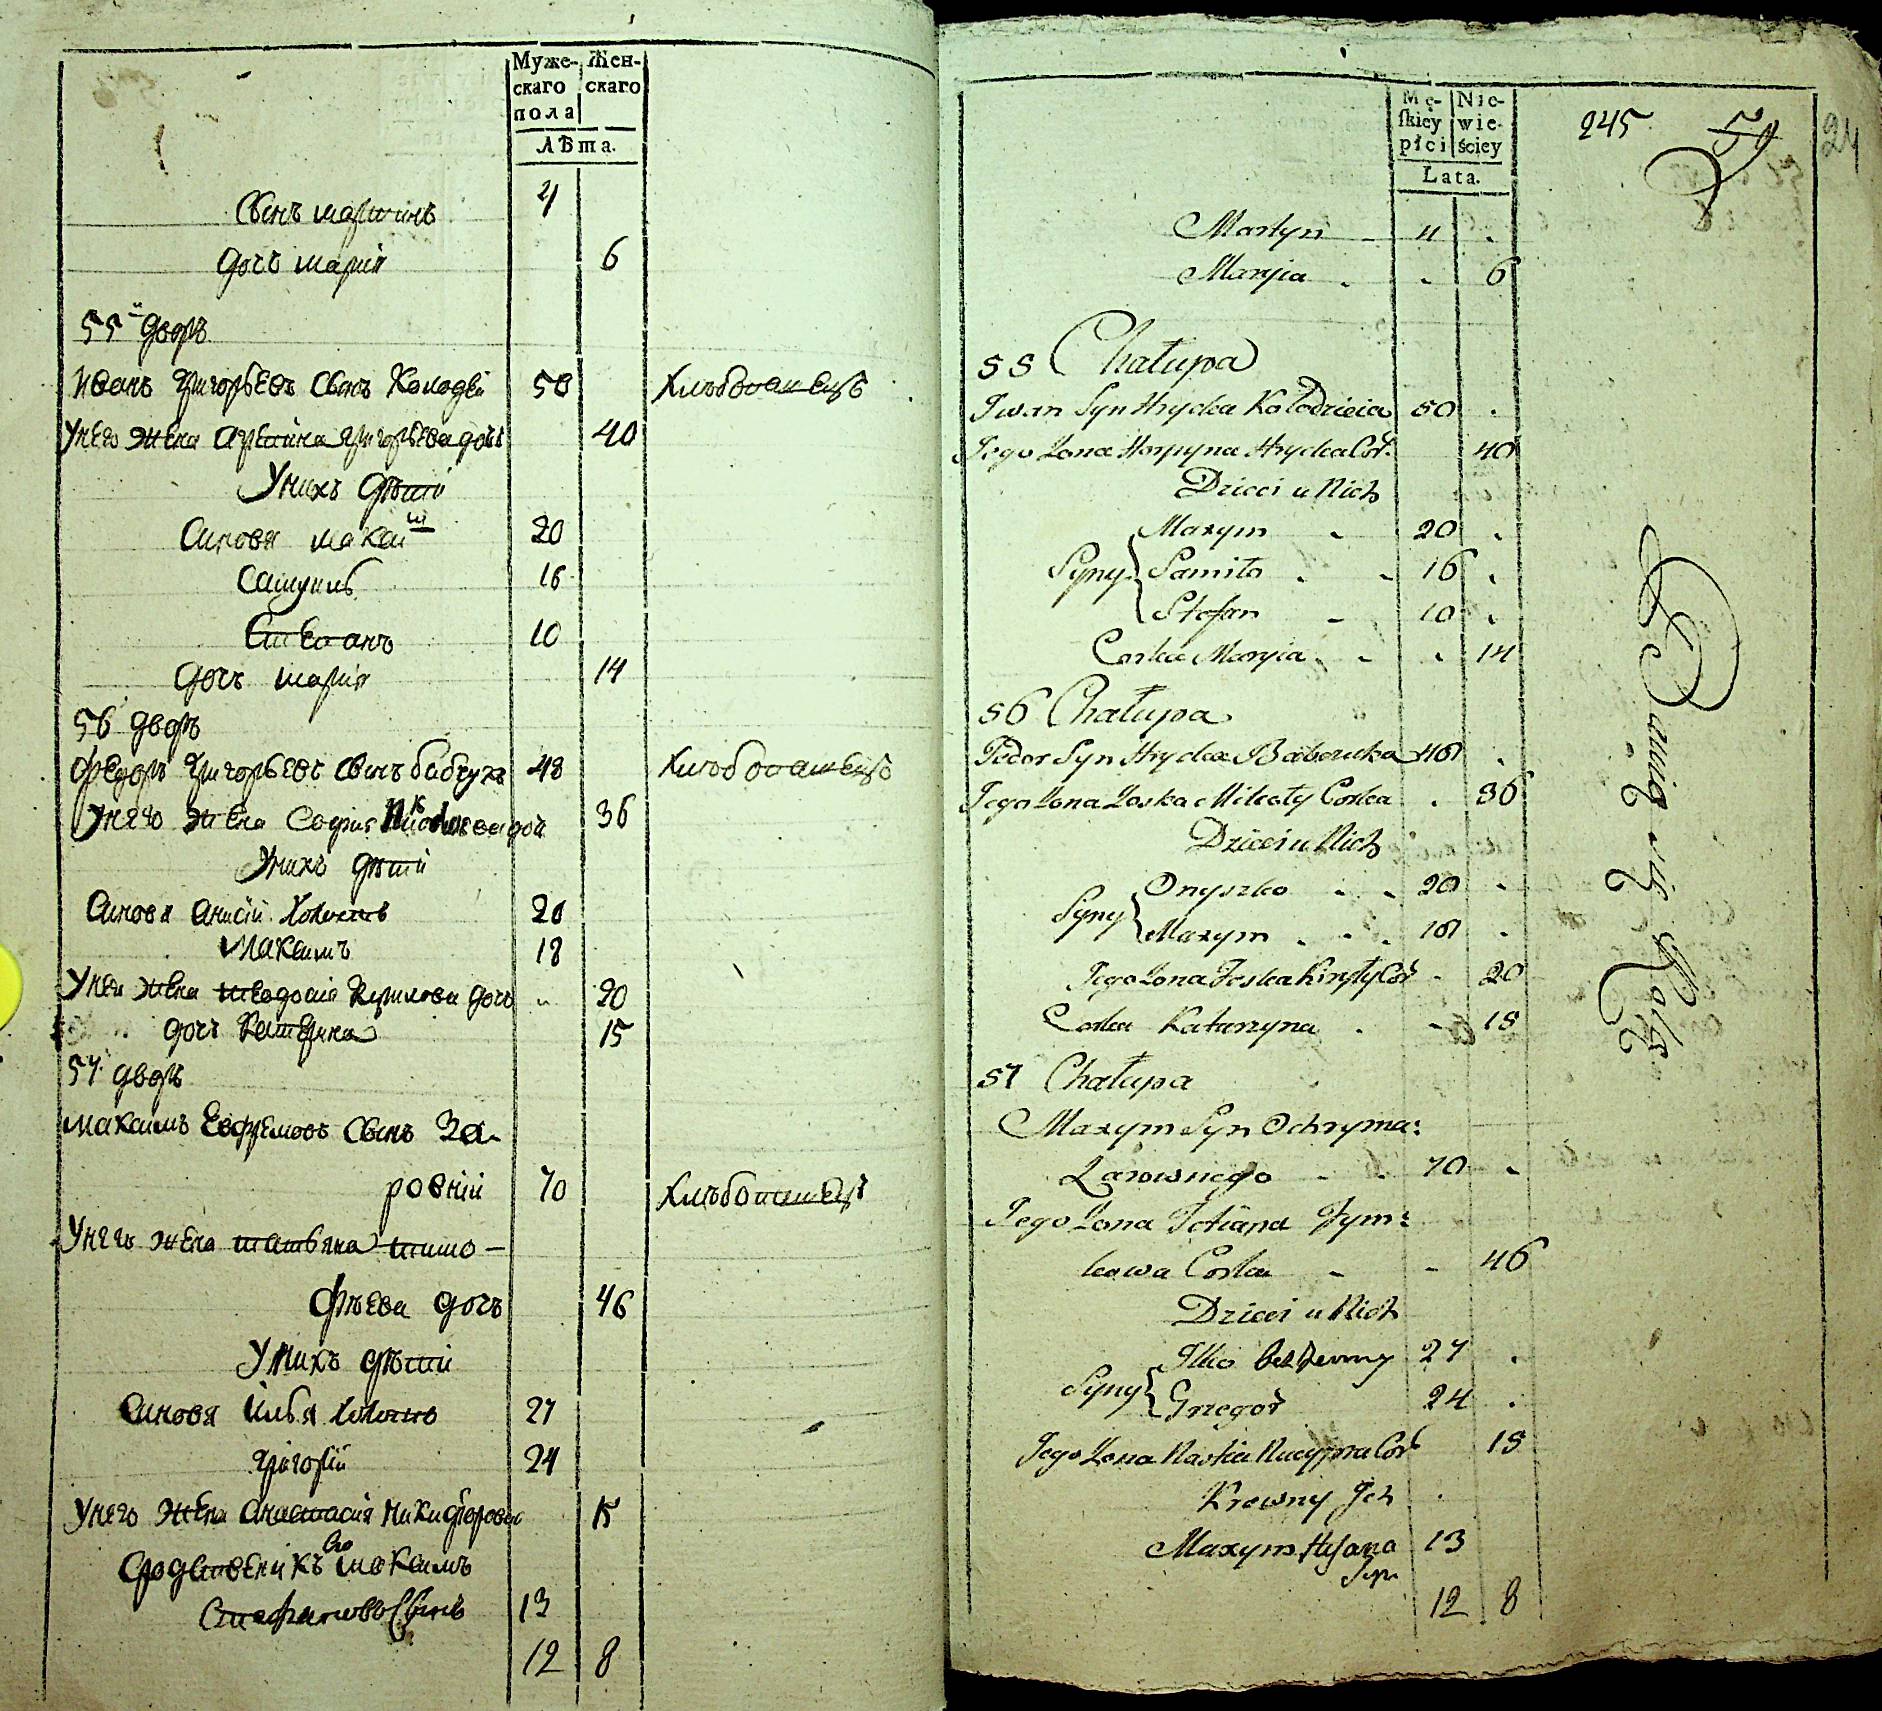 Муже- Жен-
скаго скаго
пола
ЛѢта.
Сынъ мартинъ 4
дочъ марія 6
55й дворъ
Иванъ Григорьевъ сынъ Колодѣй 50 Хлѣбопашецъ
У него жена Агрепина Григорьева дочь 40
У нихъ дѣти
Синовя максим 20
Самуилъ 16
Стефанъ 10
дочъ марія 14
56 дворъ
Федоръ Григорьевъ сынъ бабрука 48 Хлѣбопашецъ
У него жена Софія дочь 36
У нихъ дѣти
Синовя Анисій Холостъ 20
Максимъ 18
У него жена теодосія Кирилова дочъ " 20
дочъ Катерина 15
57 дворъ
Максимъ Евфремовъ сынъ За-
ровній 70 Хлѣбопашецъ
У него жена татьяна тимо-
фѣева дочъ 46
У нихъ дѣти
Синовя Илья Холостъ 27
Григорій 24
У него жена Анастасія Никифорова 15
Сродственикъ его максимъ
Стефановъ Сынъ 13
12 8
Mę- Nie-
ſkiey wie-
płci ściey
Lata.
245 59 24
Martyn - 4 .
Maryia . . 6
55 Chałupa
Iwan Syn Hrycka Kołodzieia 50 .
Jego Żona Horpyna Hrycka Cór. 40
Dzieci u Nich
Maxym - 20 .
Syny Samiło . - 16 .
Stefan - 10 .
Corka Maryia . - . 14
56 Chałupa
Fedor Syn Hrycka Baboruka 48 .
Jego Żona Zoska Mikoły Corka . 36
Dzieci u Nich
Onyszko . . 20 .
Syny Maxym . . . 18 .
Jego Żona Feska Kiryły Cór - 20
Corka Katarzyna . - 15
57 Chałupa
Maxym Syn Ochryma:
Zarownego - . 70 -
Jego Żona Tetiana Tym:
kowa Corka - - 46
Dzieci u Nich
Ilko bezżenny 27 .
Syny Gregor 24 .
Jego Żona Nastia Cór 15
Krewny Jch .
Maxym 13
Syn
12 8